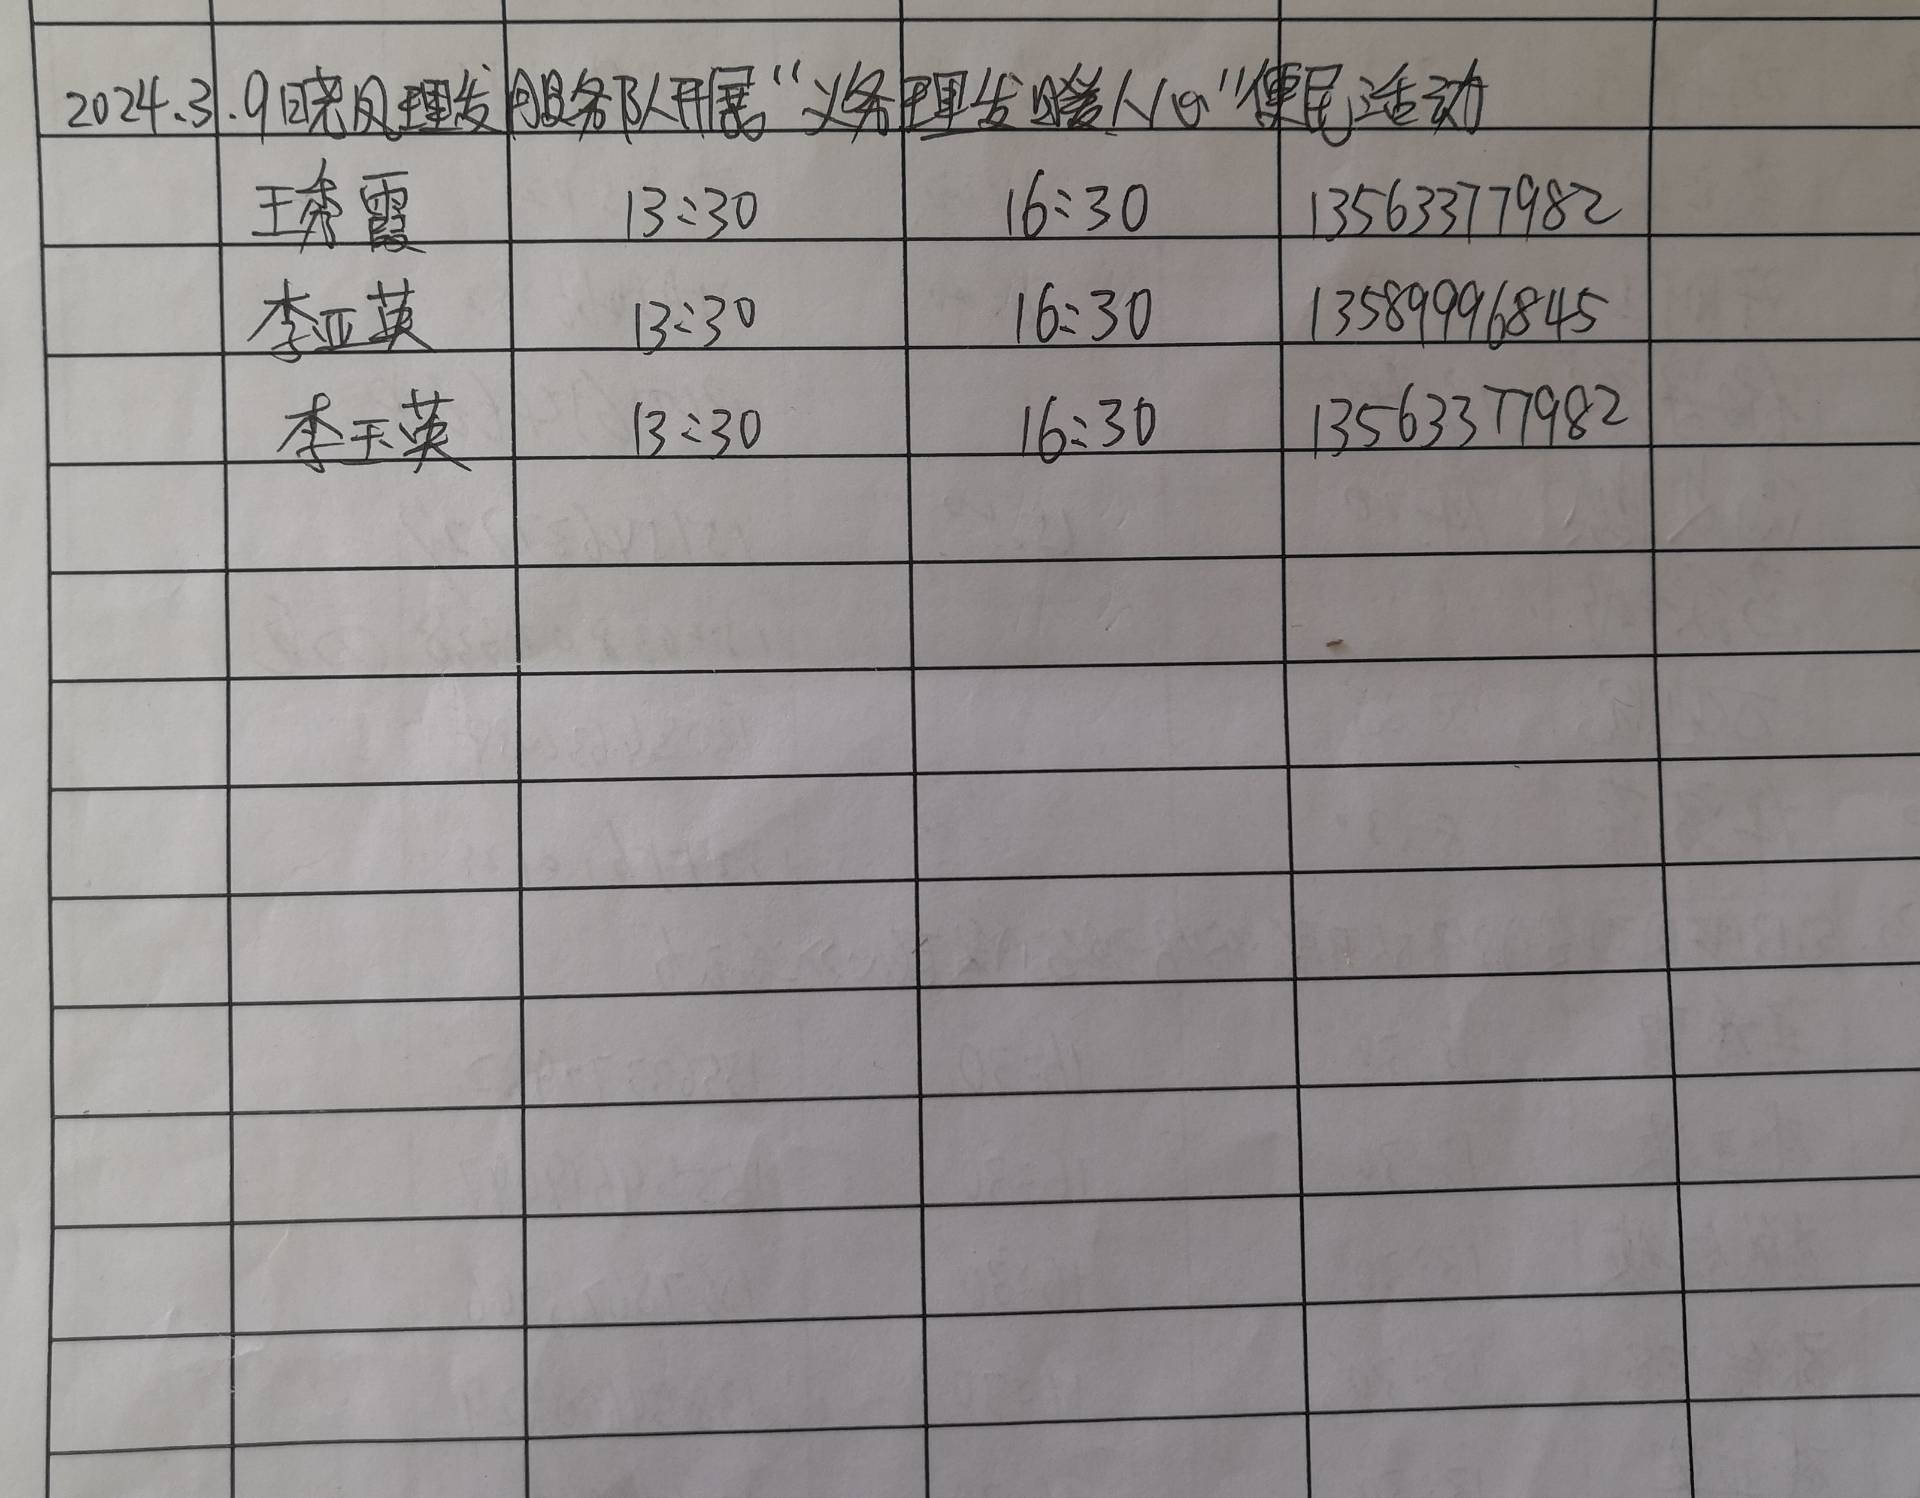 2024.3.9日晓风理发服务队开展“义务理发暖人心”便民活动
王秀霞 13:30 16:30 13563377982
李亚英 13:30 16:30 13589996845
李玉英 13:30 16:30 13563377982